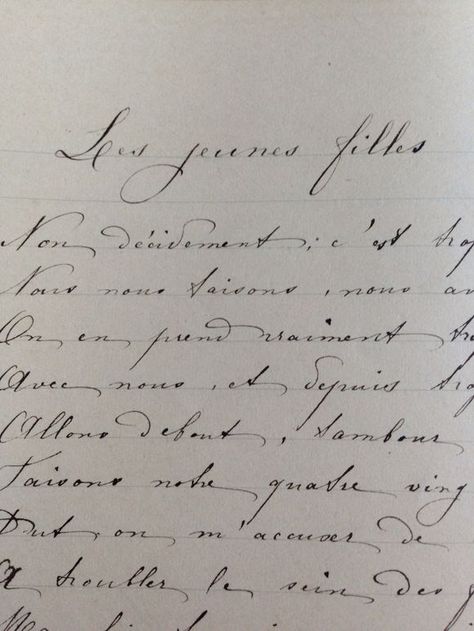 Les jeunes filles
Non décidement ; c'est trop
Nous nous taisons, nous av
On en prend vraiment tro
Avec nous, et depuis trop
Allons debout, tambour
Faisons notre quatre ving
Dut on m'accuser de
A troubler le sein des f